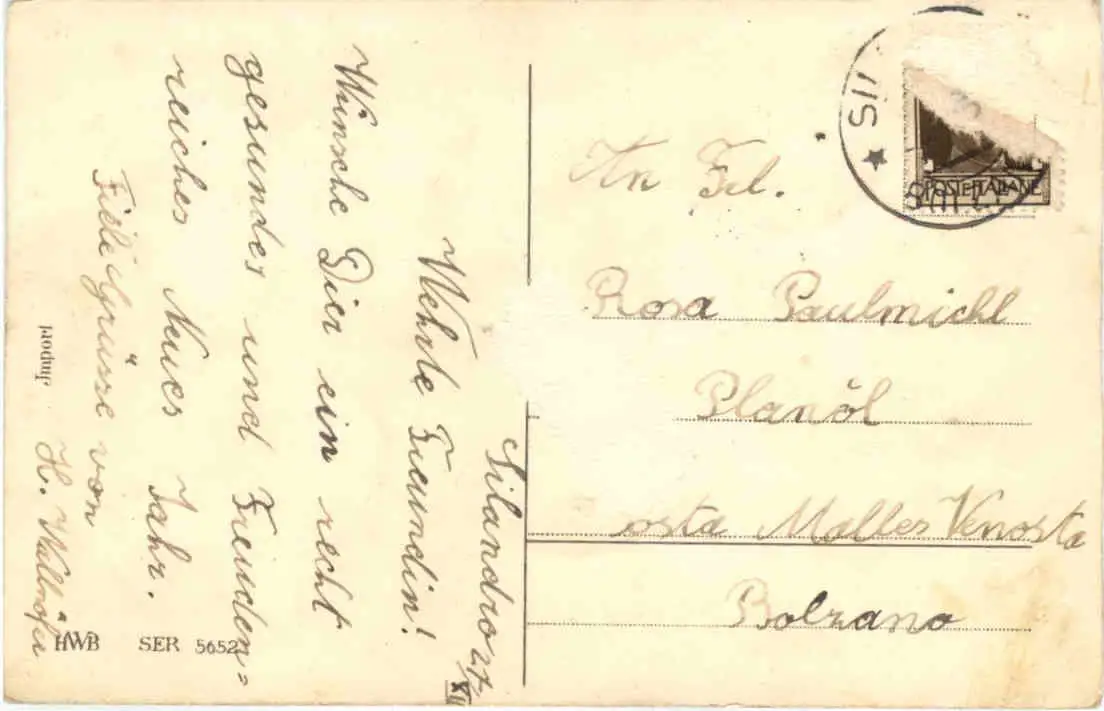 Silandro 27/XII
Wehrte Freundin!
Wünsche Dier ein recht
gesundes und Freuden=
reiches Neues Jahr.
Fiele Grüsse von
H. Wallnöfer
An Frl.
Rosa Paulmichl
Planöl
osta Malles Venosta
Bolzano
POSTE ITALIANE
Import
HWB SER 5652